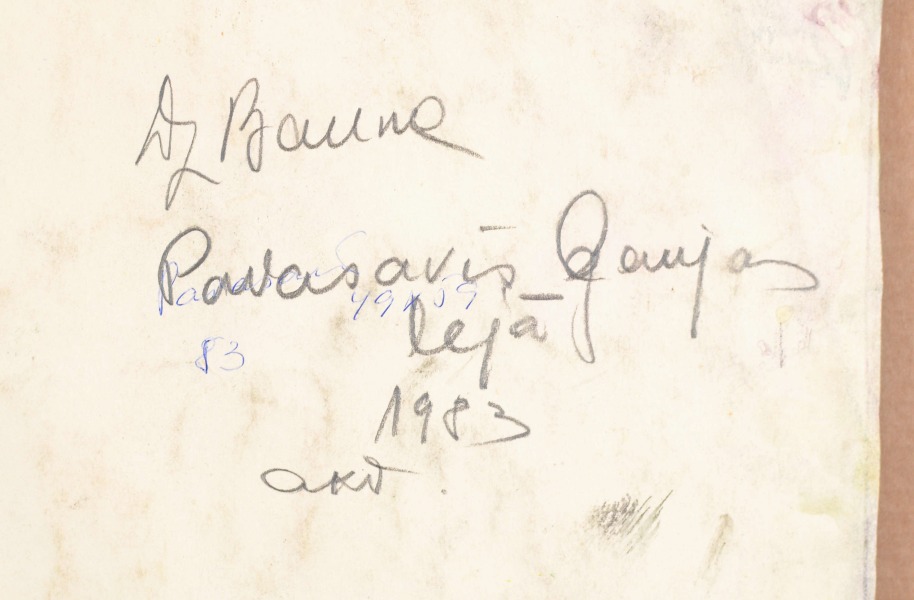 Dz Bauma
Pavasaris Gaujas
49x59
lejā
83
1983
akv.